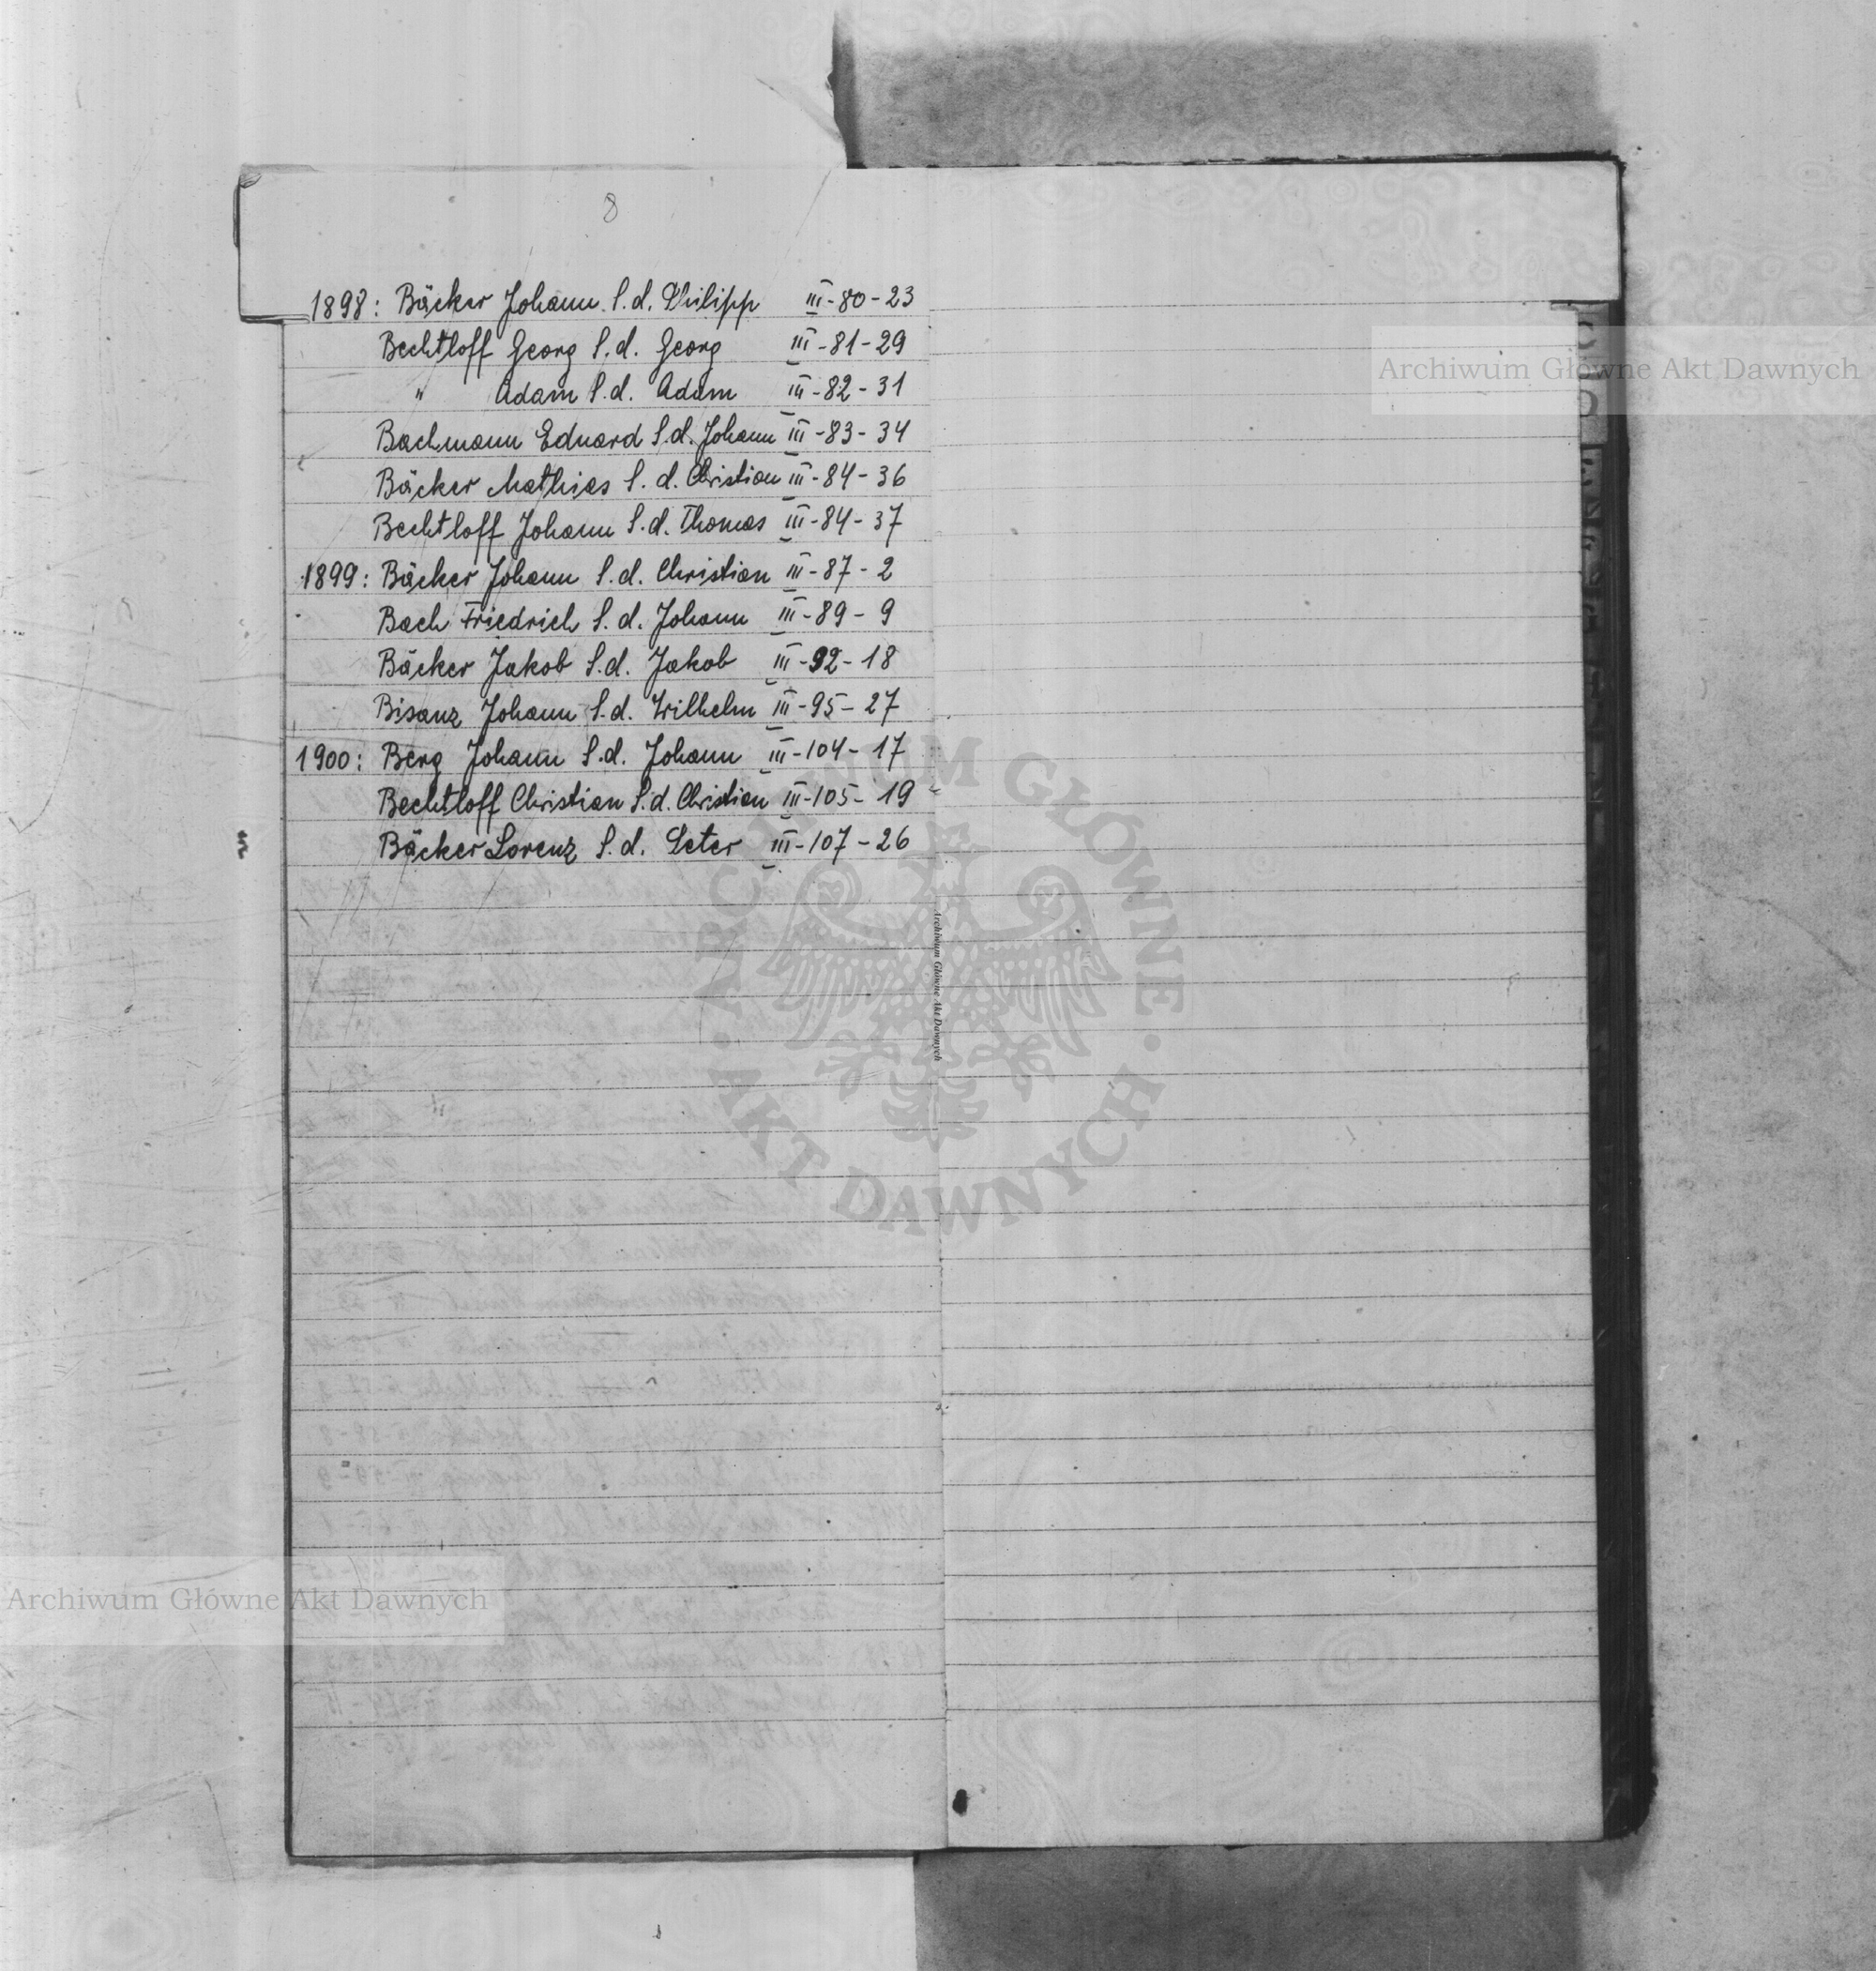 8
1898: Bäcker Johann S.d. Philipp III-80-23
Bechtloff Georg S.d. Georg III-81-29
" Adam S.d. Adam III-82-31
Bachmann Eduard S.d. Johann III-83-34
Bäcker Mathias S.d. Christian III-84-36
Bechtloff Johann S.d. Thomas III-84-37
1899: Bäcker Johann S.d. Christian III-87-2
Bach Friedrich S.d. Johann III-89-9
Bäcker Jakob S.d. Jakob III-92-18
Bisanz Johann S.d. Wilhelm III-95-27
1900: Berg Johann S.d. Johann III-104-17
Bechtloff Christian S.d. Christian III-105-19
Bäcker Lorenz S.d. Peter III-107-26
Archiwum Główne Akt Dawnych
ARCHIWUM GŁÓWNE · AKT DAWNYCH ·
Archiwum Główne Akt Dawnych
Archiwum Główne Akt Dawnych